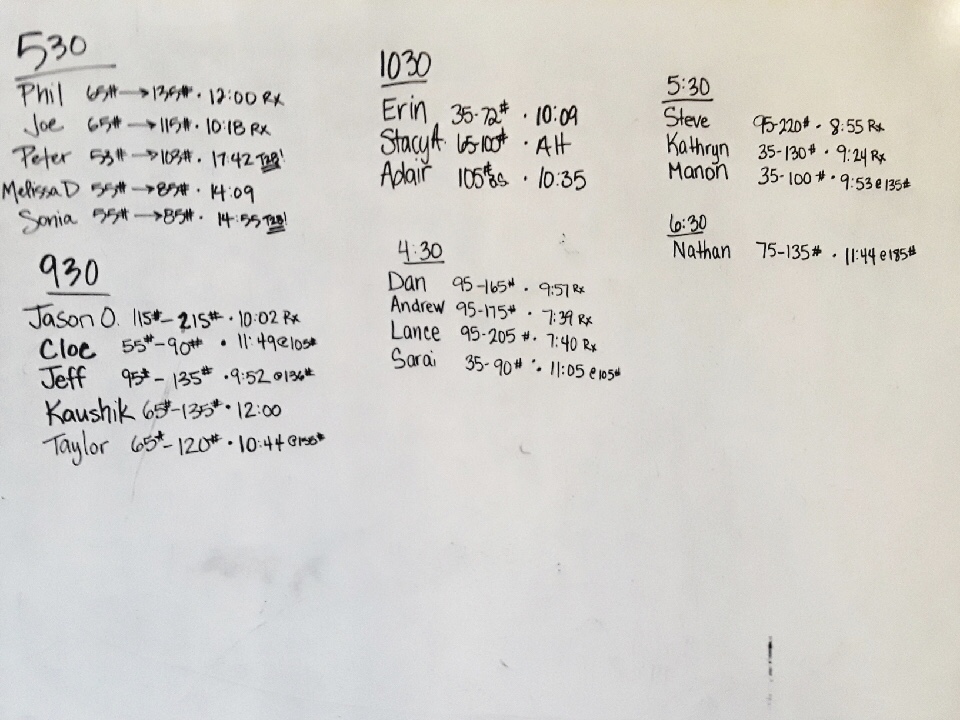 530
Phil 65# → 135# · 12:00 Rx
Joe 65# → 115# · 10:18 Rx
Peter 53# → 103# · 17:42 T2B!
Melissa D 55# → 85# · 14:09
Sonia 55# → 85# · 14:55 T2B!
930
Jason O. 115# - 215# · 10:02 Rx
Cloe 55# - 90# · 11:49 @ 105#
Jeff 95# - 135# · 9:52 @ 136#
Kaushik 65# - 135# · 12:00
Taylor 65# - 120# · 10:44
1030
Erin 35-72# · 10:09
Stacy A. 65-100# · AH
Adair 105# · 10:35
4:30
Dan 95-165# · 9:57 Rx
Andrew 95-175# · 7:39 Rx
Lance 95-205 #. 7:40 Rx
Sarai 35-90# · 11:05 @ 105#
5:30
Steve 95-220# · 8:55 Rx
Kathryn 35-130# · 9:24 Rx
Manon 35-100# · 9:53 @ 135#
6:30
Nathan 75-135# · 11:44 @ 185#